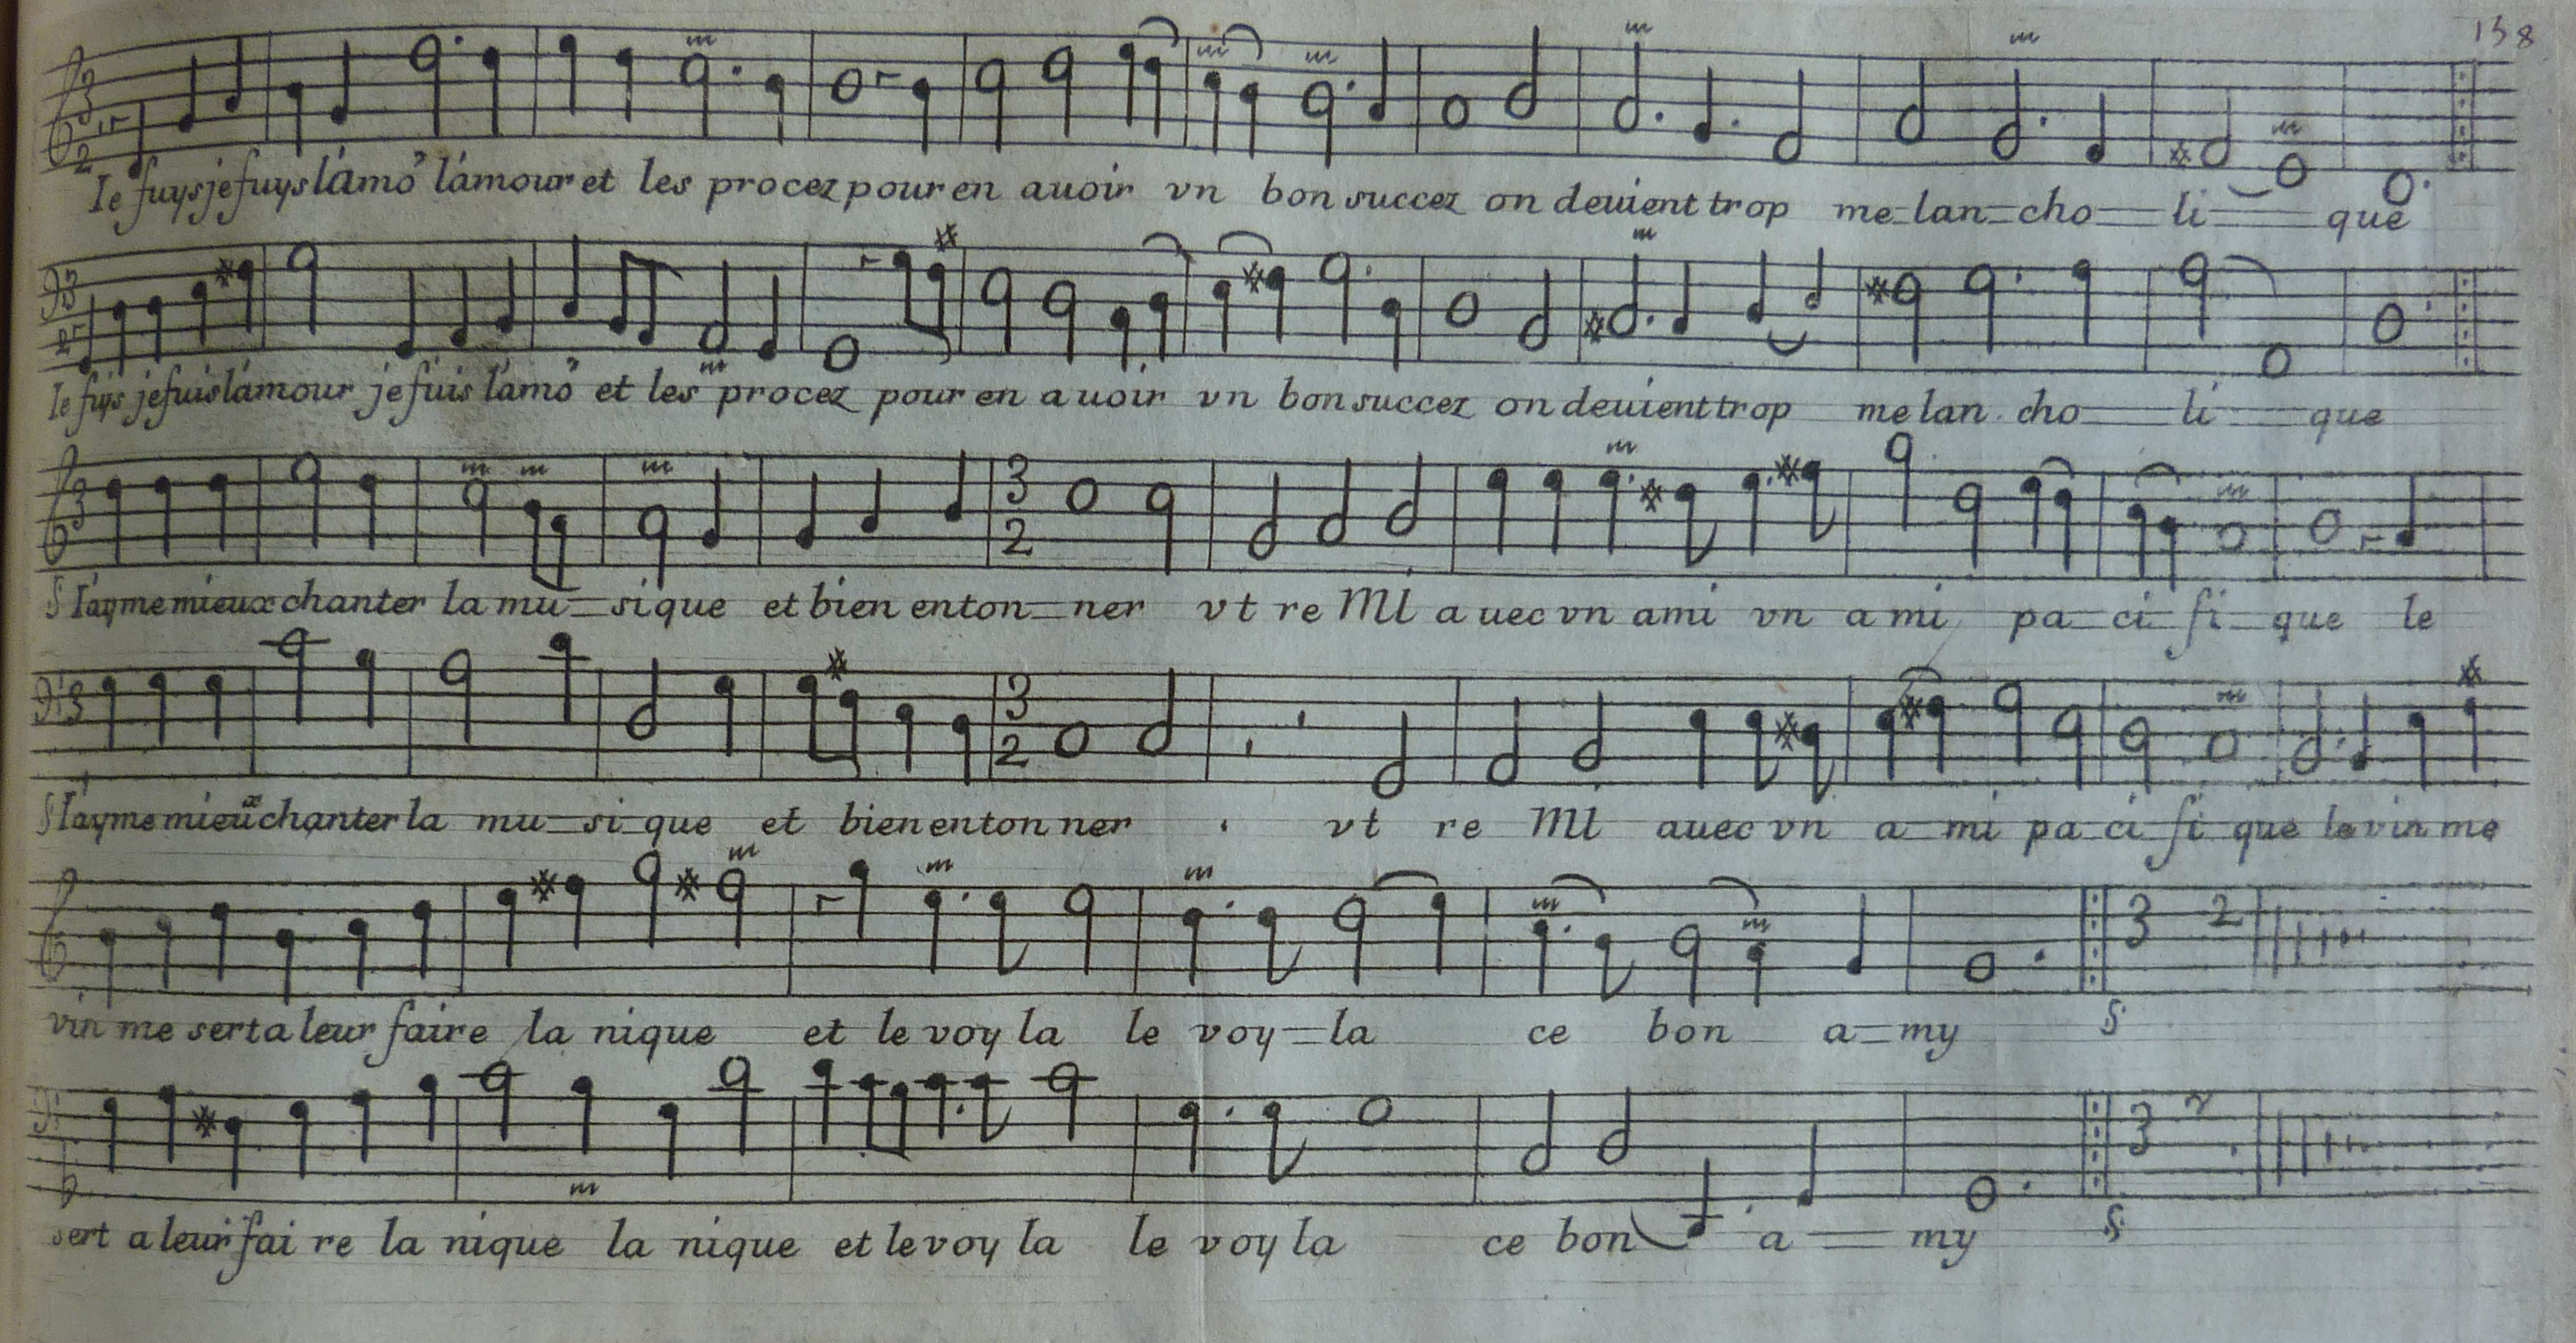 138
Ie fuys je fuys lámo^r lámour et les procez pour en auoir vn bon succez on deuient trop me-lan=cho=li=que
Ie fuys je fuis lámour je fuis lámo^r et les procez pour en auoir vn bon succez on deuient trop me lan cho=li=que
Iáyme mieux chanter la mu=si que et bien enton=ner vt re MI auec vn ami vn a mi pa=ci=fi=que le
Iáyme mieux chanter la mu=si que et bien enton ner vt re MI auec vn a=mi pa=ci=fi=que le vin me
vin me sert a leur faire la nique et le voy la le voy=la ce bon a=my
sert a leur fai re la nique la nique et le voy la le voy la ce bon a=my